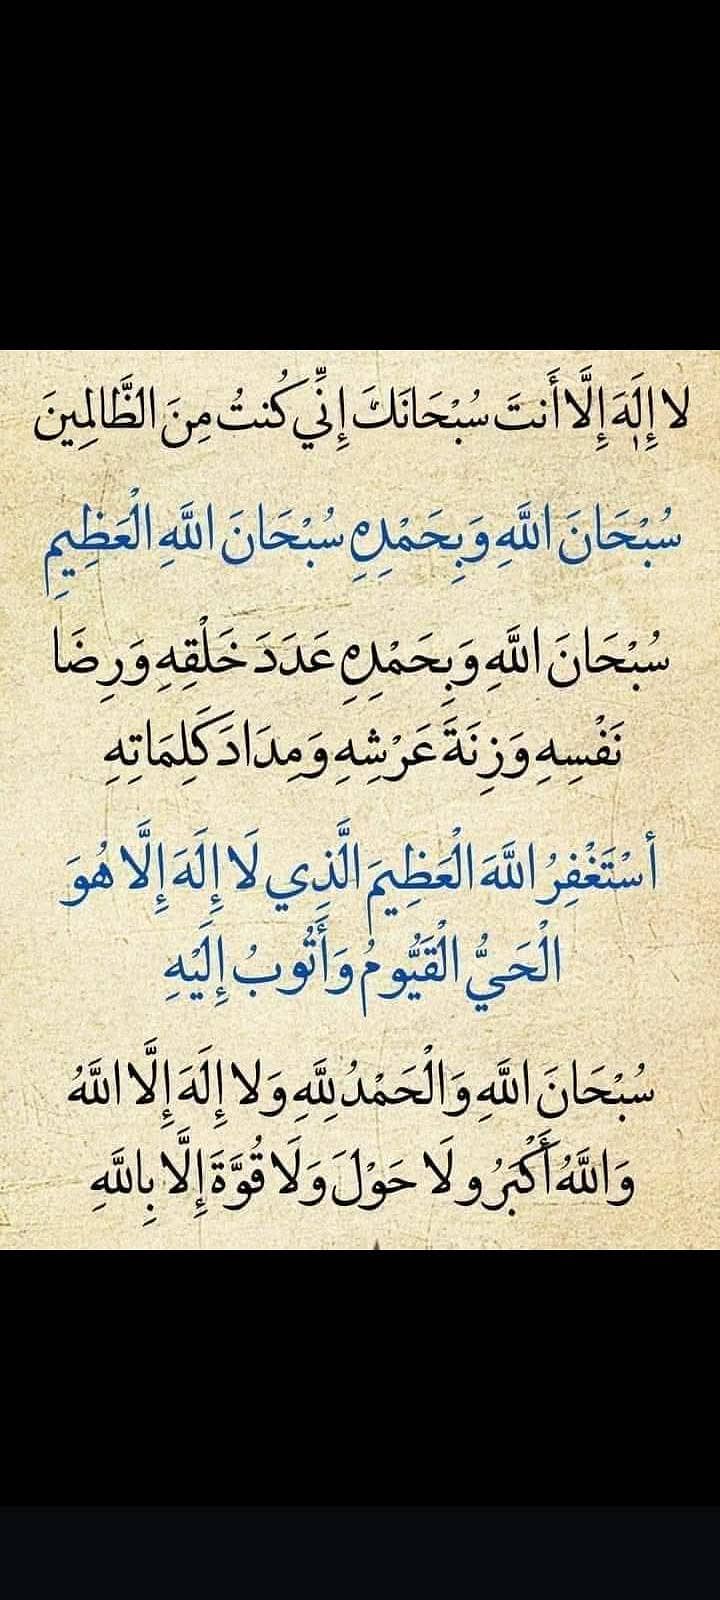 لا إِلَهَ إِلَّا أَنتَ سُبْحَانَكَ إِنِّي كُنتُ مِنَ الظَّالِمِينَ
سُبْحَانَ اللَّهِ وَبِحَمْدِهِ سُبْحَانَ اللَّهِ الْعَظِيمِ
سُبْحَانَ اللَّهِ وَبِحَمْدِهِ عَدَدَ خَلْقِهِ وَرِضَا
نَفْسِهِ وَزِنَةَ عَرْشِهِ وَمِدَادَ كَلِمَاتِهِ
أسْتَغْفِرُ اللَّهَ الْعَظِيمَ الَّذِي لَا إِلَهَ إِلَّا هُوَ
الْحَيُّ الْقَيُّومُ وَأَتُوبُ إِلَيْهِ
سُبْحَانَ اللَّهِ وَالْحَمْدُ لِلَّهِ وَلا إِلَهَ إِلَّا اللَّهُ
وَاللَّهُ أَكْبَرُ ولَا حَوْلَ وَلَا قُوَّةَ إِلَّا بِاللَّهِ